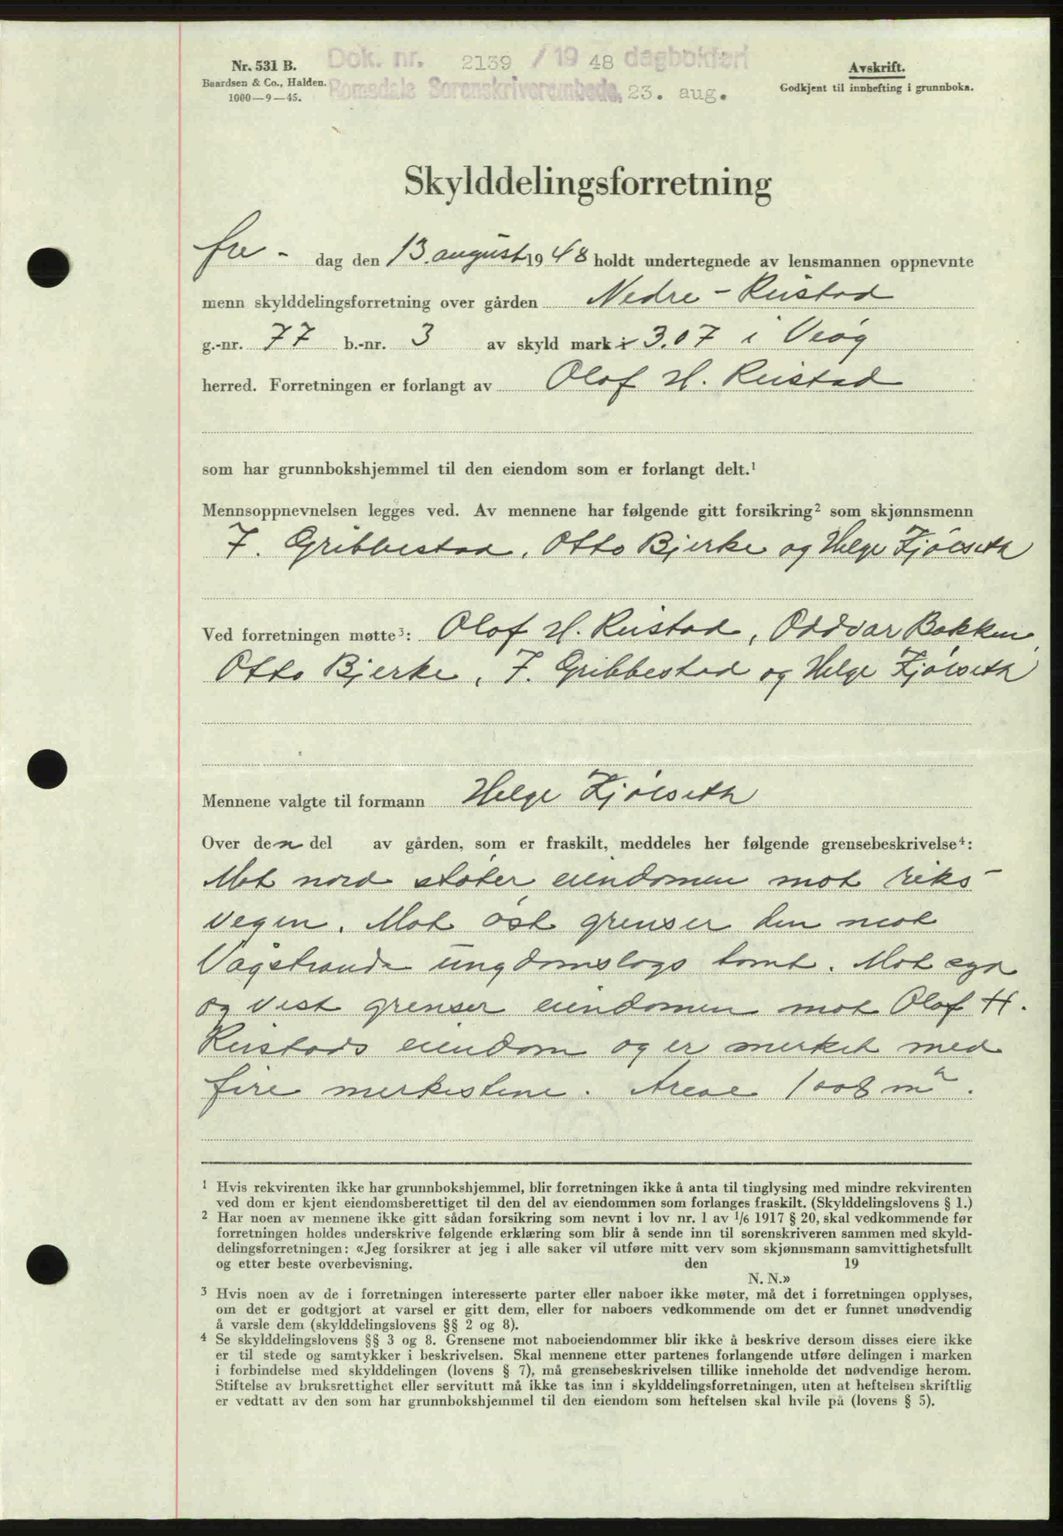 Nr. 531 B.
Baardsen & Co., Halden.
1000—9—45.
Dok. nr. 2139 / 19 48 dagbokført
Romsdale Sorenskriverembede, 23. aug.
Avskrift.
Godkjent til innhefting i grunnboka.
Skylddelingsforretning
fre - dag den 13. august 19 48 holdt undertegnede av lensmannen oppnevnte
menn skylddelingsforretning over gården Nedre - Reistad
g.-nr. 77 b.-nr. 3 av skyld mark 3.07 i Veøy
herred. Forretningen er forlangt av Olof H. Reistad
som har grunnbokshjemmel til den eiendom som er forlangt delt.¹
Mennsoppnevnelsen legges ved. Av mennene har følgende gitt forsikring² som skjønnsmenn
F. Gribbestad, Otto Bjerke og Helge Kjølseth
Ved forretningen møtte³: Olof H. Reistad, Oddvar Bakken,
Otto Bjerke, F. Gribbestad og Helge Kjølseth
Mennene valgte til formann Helge Kjølseth
Over den del av gården, som er fraskilt, meddeles her følgende grensebeskrivelse⁴:
Mot nord støter eiendomen mot riks-
vegen. Mot øst grenser den mot
Vågstranda ungdomslags tomt. Mot syd
og vest grenser eiendomen mot Olof H.
Reistads eiendom og er merket med
fire merkesteine. Areae 1008 m².
¹ Hvis rekvirenten ikke har grunnbokshjemmel, blir forretningen ikke å anta til tinglysing med mindre rekvirenten
ved dom er kjent eiendomsberettiget til den del av eiendommen som forlanges fraskilt. (Skylddelingslovens § 1.)
² Har noen av mennene ikke gitt sådan forsikring som nevnt i lov nr. 1 av 1/6 1917 § 20, skal vedkommende før
forretningen holdes underskrive følgende erklæring som blir å sende inn til sorenskriveren sammen med skyld-
delingsforretningen: «Jeg forsikrer at jeg i alle saker vil utføre mitt verv som skjønnsmann samvittighetsfullt
og etter beste overbevisning. den 19
N. N.»
³ Hvis noen av de i forretningen interesserte parter eller naboer ikke møter, må det i forretningen opplyses,
om det er godtgjort at varsel er gitt dem, eller for naboers vedkommende om det er funnet unødvendig
å varsle dem (skylddelingslovens §§ 2 og 8).
⁴ Se skylddelingslovens §§ 3 og 8. Grensene mot naboeiendommer blir ikke å beskrive dersom disses eiere ikke
er til stede og samtykker i beskrivelsen. Skal mennene etter partenes forlangende utføre delingen i marken
i forbindelse med skylddelingen (lovens § 7), må grensebeskrivelsen tillike inneholde det nødvendige herom.
Stiftelse av bruksrettighet eller servitutt må ikke tas inn i skylddelingsforretningen, uten at heftelsen skriftlig
er vedtatt av den som har grunnbokshjemmel til den eiendom som heftelsen skal hvile på (lovens § 5).